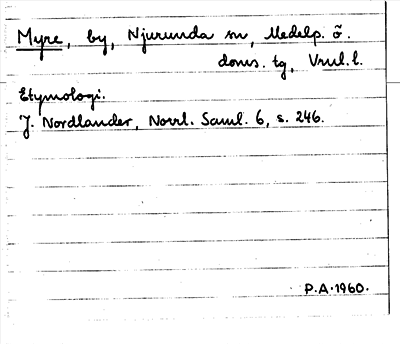 Myre, by, Njurunda sn, Medelp. ö.
doms. tg, Vnrl. l.
Etymologi.
J. Nordlander, Norrl. Saml. 6, s. 246.
P.A. 1960.